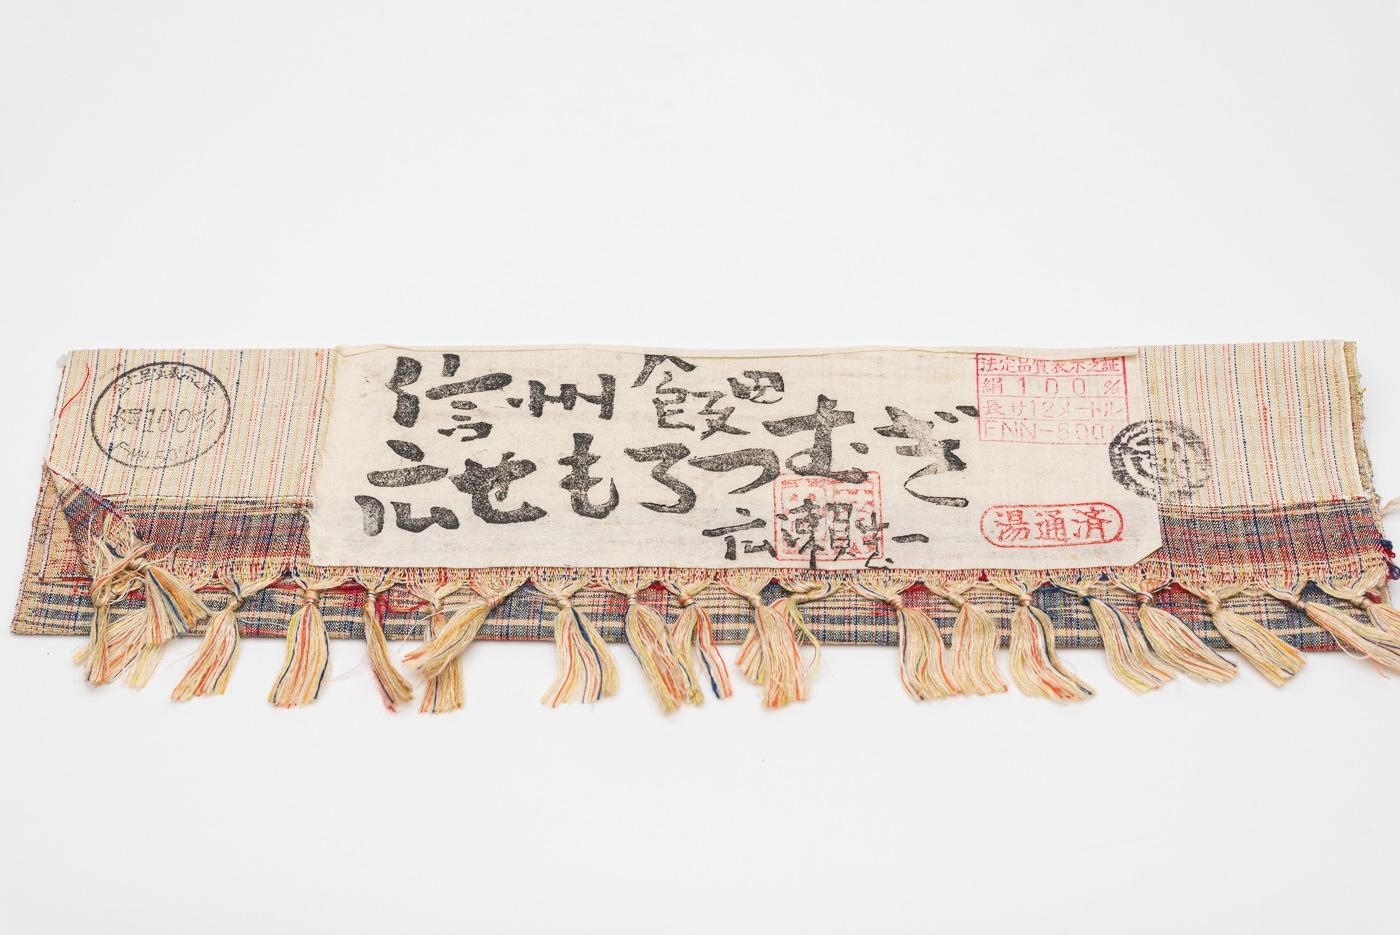 信州飯田
広せもろつむぎ
広瀬
一
法定品質表示之証
絹100%
長サ12メートル
湯通済
絹100%